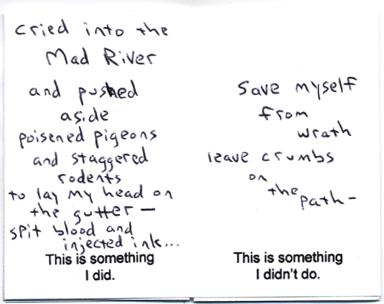 cried into the
Mad River
and pushed
aside
poisened pigeons
and staggered
rodents
to lay my head on
the gutter—
spit blood and
injected ink...
This is something
I did.
save myself
from
wrath
leave crumbs
on
the
path-
This is something
I didn't do.